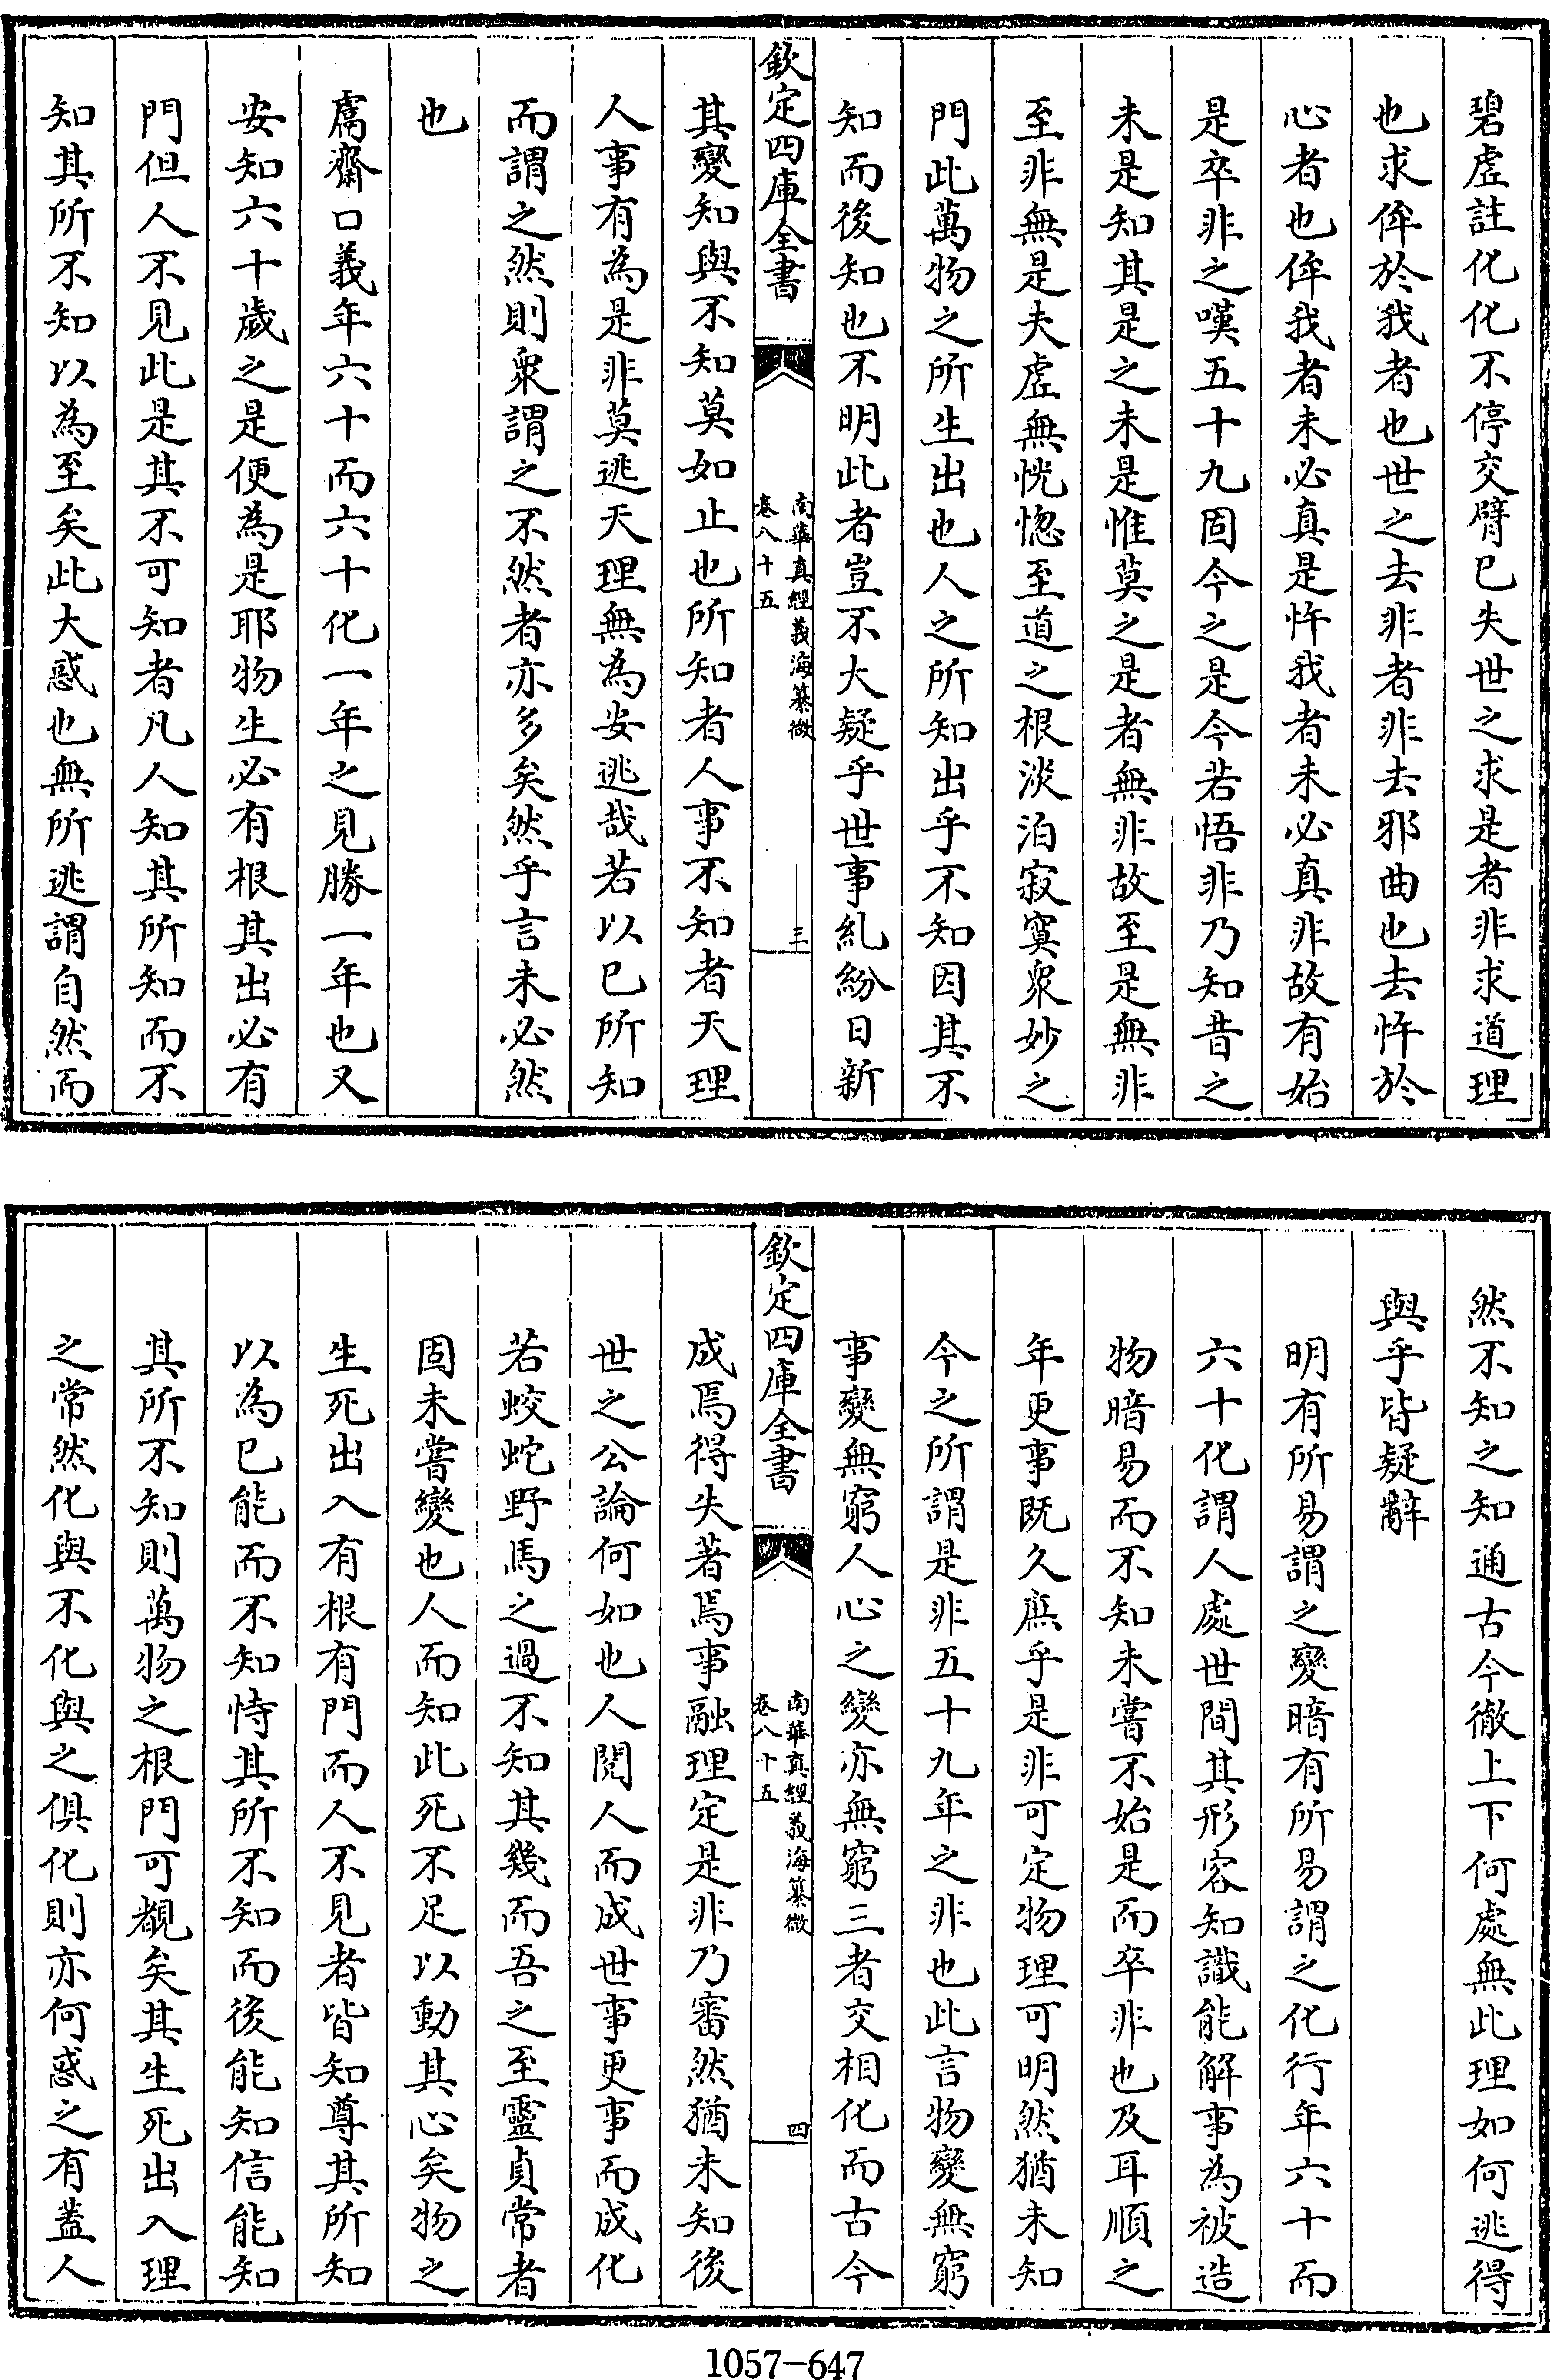 碧虛註化化不停交臂已失世之求是者非求道理
也求侔於我者也世之去非者非去邪曲也去忤於
心者也侔我者未必真是忤我者未必真非故有始
是卒非之嘆五十九固今之是今若悟非乃知昔之
未是知其是之未是惟莫之是者無非故至是無非
至非無是夫虛無恍惚至道之根淡泊寂寞衆妙之
門此萬物之所生出也人之所知出乎不知因其不
知而後知也不明此者豈不大疑乎世事糺紛日新
欽定四庫全書
南華真經義海纂微
卷八十五
三
其變知與不知莫如止也所知者人事不知者天理
人事有為是非莫逃天理無為安逃哉若以已所知
而謂之然則衆謂之不然者亦多矣然乎言未必然
也
鬳齋口義年六十而六十化一年之見勝一年也又
安知六十歲之是便為是耶物生必有根其出必有
門但人不見此是其不可知者凡人知其所知而不
知其所不知以為至矣此大惑也無所逃謂自然而
然不知之知通古今徹上下何處無此理如何逃得
與乎皆疑辭
明有所易謂之變暗有所易謂之化行年六十而
六十化謂人處世間其形容知識能解事為被造
物暗易而不知未嘗不始是而卒非也及耳順之
年更事既久庶乎是非可定物理可明然猶未知
今之所謂是非五十九年之非也此言物變無窮
事變無窮人心之變亦無窮三者交相化而古今
欽定四庫全書
南華真經義海纂微
卷八十五
四
成焉得失著焉事融理定是非乃審然猶未知後
世之公論何如也人閱人而成世事更事而成化
若蛟蛇野馬之過不知其幾而吾之至靈貞常者
固未嘗變也人而知此死不足以動其心矣物之
生死出入有根有門而人不見者皆知尊其所知
以為已能而不知恃其所不知而後能知信能知
其所不知則萬物之根門可覩矣其生死出入理
之常然化與不化與之俱化則亦何惑之有蓋人
1057-647